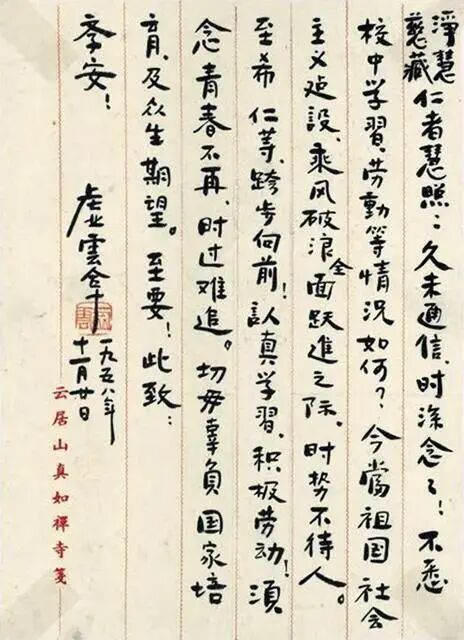 淨慧
慈藏
仁者慧照：久未通信，时深念々！不悉
校中学習、劳動等情况如何？今當祖国社会
主义建設、乘风破浪、全面跃進之际，时势不待人。
至希 仁等，跨步向前！認真学習、积极劳动！須
念青春不再，时过难追。切毋辜負国家培
育，及众生期望。至要！此致：
季安！
虚雲合十
一九五八年
十一月廿日
云居山真如禪寺箋